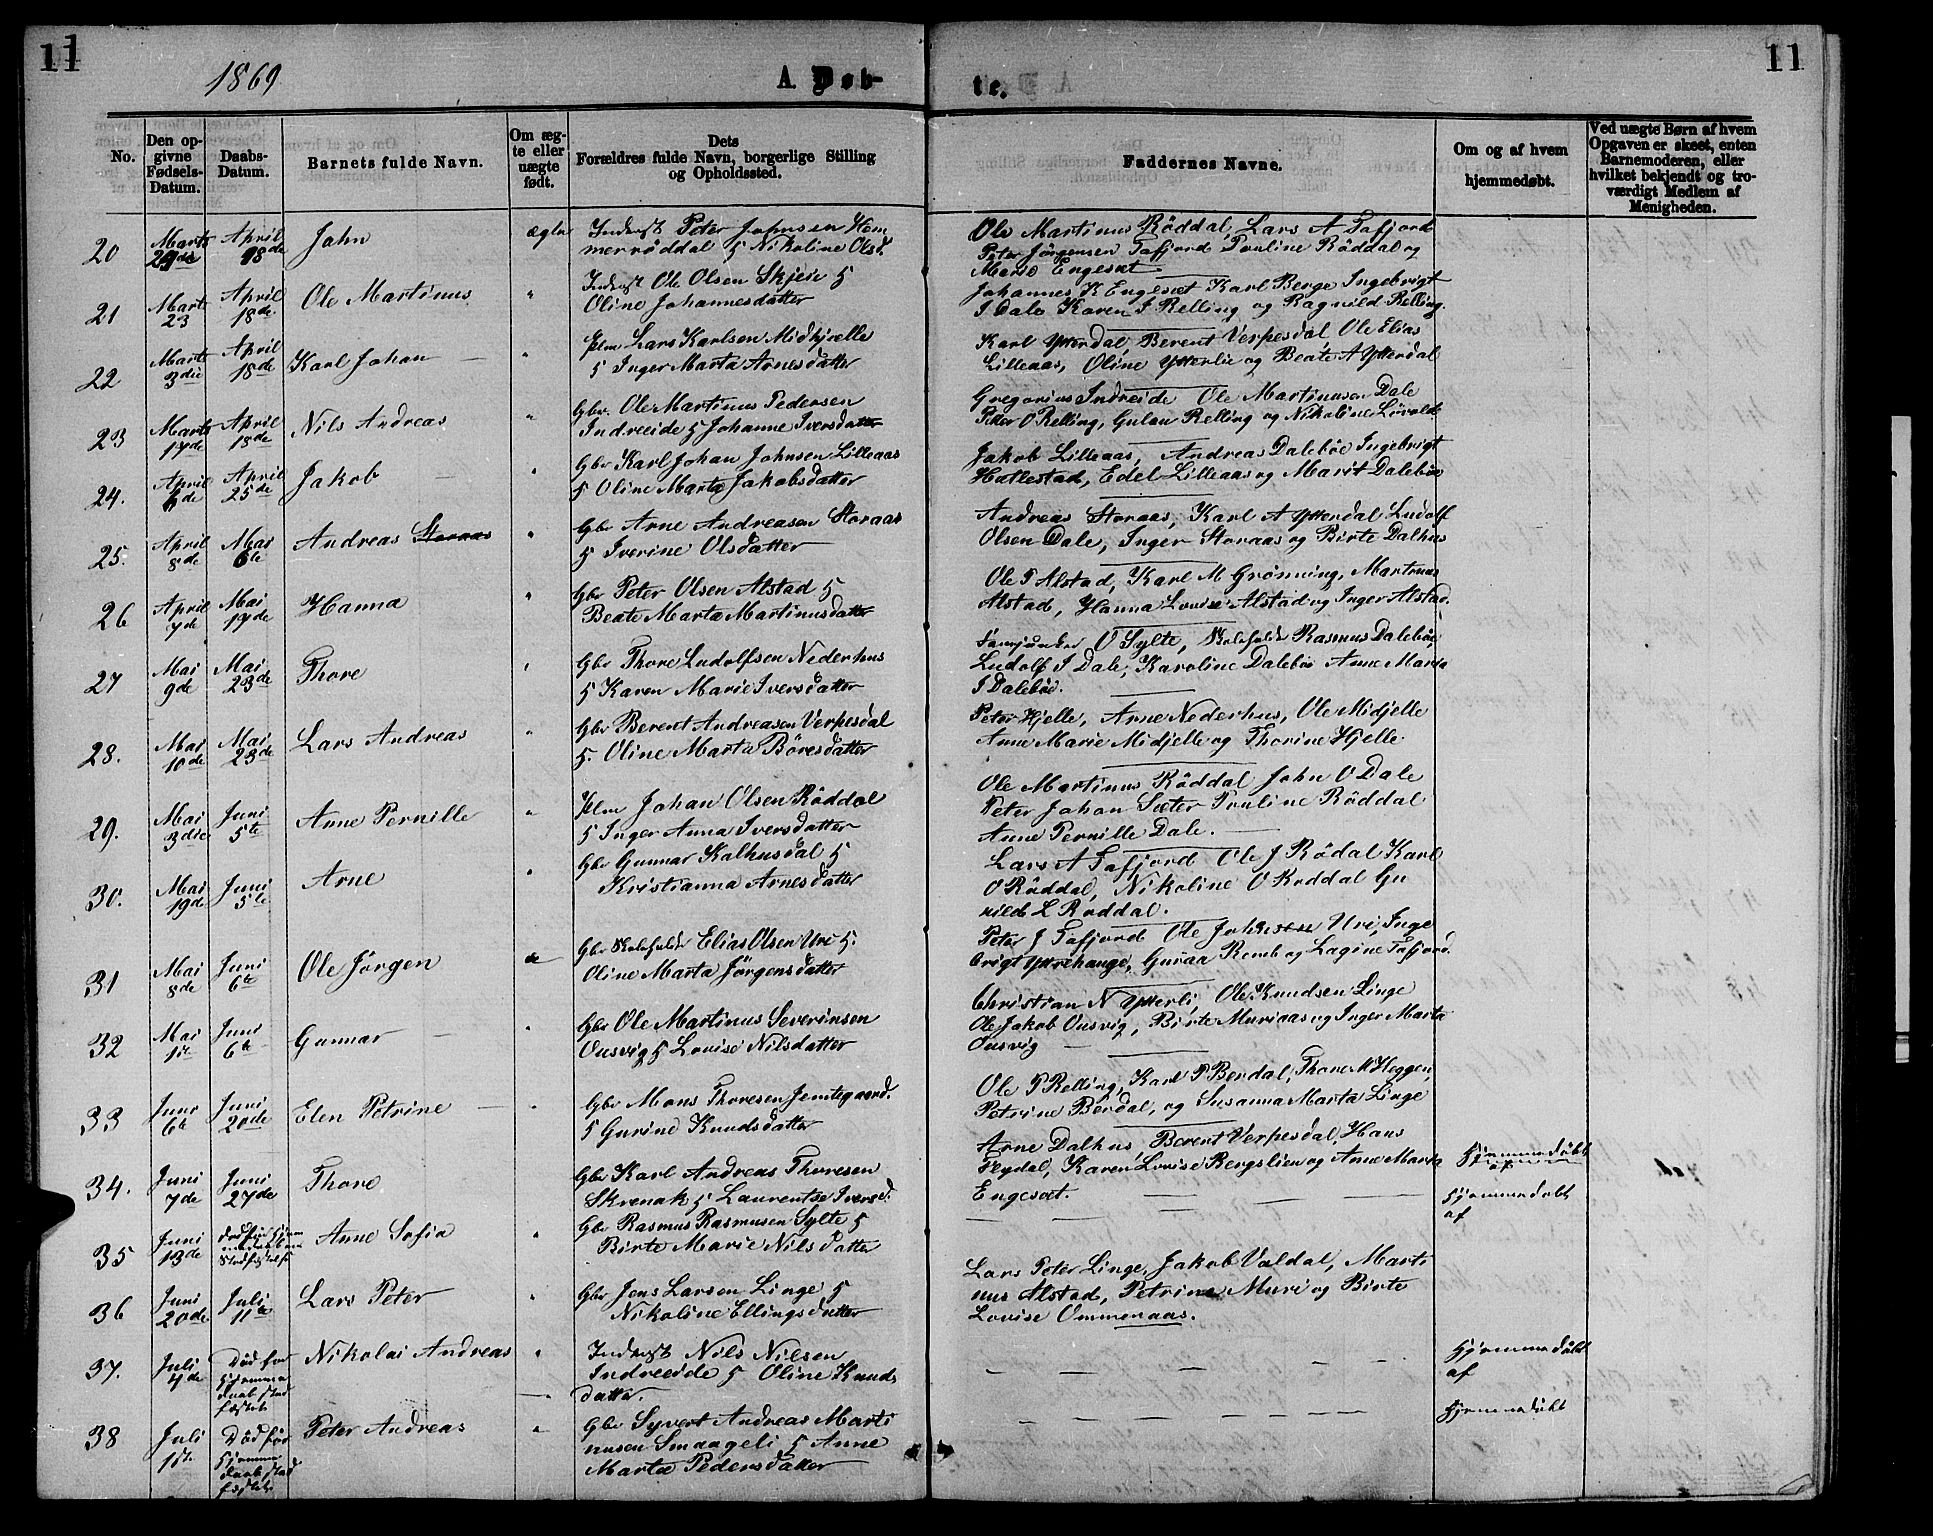 11
1869
A. Døb-
te.
11
No.
Den op-
givne
Fødsels-
Datum.
Daabs-
Datum.
Barnets fulde Navn.
Om æg-
te eller
uægte
født.
Dets
Forældres fulde Navn, borgerlige Stilling
og Opholdssted.
Faddernes Navne.
Om og af hvem
hjemmedøbt.
Ved uægte Børn af hvem
Opgaven er skeet, enten
Barnemoderen, eller
hvilket bekjendt og tro-
værdigt Medlem af
Menigheden.
20 Marts 29de April 18de John ægte Inderst Peter Johnsen Hem
merröddal 5 Nikoline Olsd.
Ole Martinus Röddal, Lars A Tafjord
Peter Jörgensen Tafjord Pauline Röddal og
Marie Engeset
21 Marts 23 April 18de Ole Martinus " Inderst Ole Olsen Skjeie 5
Oline Johannesdatter
Johannes K Engeset Karl Berge Ingebrigt
I Dale Karen I Relling og Ragnild Relling.
22 Marts 3die April 18de Karl Johan " Plm Lars Karlsen Midhjelle
5 Inger Marta Arnesdatter
Karl Ytterdal Berent Verpesdal, Ole Elias
Lilleaas, Oline Ytterlie og Beate A Ytterdal
23 Marts 17de April 18de Nils Andreas " Gbr. Ole Martinus Pedersen
Indreeide 5 Johanne Iversdatter
Gregorius Indreide Ole Martinusen Dale
Peter O Relling, Gulau Relling og Nikoline Lövold
24. April 6de April 25de Jakob " Gbr Karl Johan Johnsen Lilleaas
5 Oline Marta Jakobsdatter
Jakob Lilleaas, Andreas Dalebøe Ingebrigt
Hallestad, Edel Lilleaas og Marit Dalebøe
25. April 8de Mai 6te Andreas Storaas " Gbr Arne Andreasen Storaas
5 Iverine Olsdatter
Andreas Storaas, Karl A Ytterdal Ludolf
Olsen Dale, Inger Storaas og Birte Dalhus
26 April 7de Mai 17de Hanna " Gbr Peter Olsen Alstad 5
Beate Marta Martinusdatter
Ole P Alstad, Karl M Grönning, Martinus
Alstad, Hanna Lovise Alstad og Inger Alstad.
27 Mai 9de Mai 23de Thore " Gbr Thore Ludolfsen Nederhus
5 Karen Marie Iversdatter
O Sylte, Skoleholdr Rasmus Dalebøe,
Ludolf I Dale, Karoline Dalebøe Anne Marta
I Dalebøe.
28. Mai 10de Mai 23de Lars Andreas " Gbr Berent Andreasen Verpesdal
5. Oline Marta Böresdatter
Peter Hjelle, Arne Nederhus, Ole Midjelle
Anne Marie Midjelle og Thorine Hjelle.
29. Mai 3die Juni 5te Anne Pernille " Plm Johan Olsen Röddal
5 Inger Anna Iversdatter
Ole Martinus Röddal John O Dale
Peter Johan Sæter Pauline Röddal
Anne Pernille Dale.
30. Mai 19de Juni 5te Arne " Gbr Gunnar Kalhusdal 5
Kristianna Arnesdatter
Lars A Tafjord Ole J Rödal Karl
O Röddal, Nikoline O Röddal Gu
nild L Röddal.
31 Mai 8de Juni 6te Ole Jörgen Gbr Skoleholdr Elias Olsen Uri 5.
Oline Marta Jörgensdatter
Peter J Tafjord Ole Johnsen Uri, Inge
brigt Yttrehauge, Guraa Romb og Lagine Tafjord.
32 Mai 1te Juni 6te Gunnar " Gbr Ole Martinus Severinsen
Uusvig 5 Lovise Nilsdatter
Christian N Ytterli, Ole Knudsen Linge
Ole Jakob Uusvig, Birte Muriaas og Inger Marta
Uusvig
33 Juni 6te Juni 20de Elen Petrine " Gbr Mons Thoresen Jemtegaard.
5 Gurine Knudsdatter
Ole P Relling, Karl P Berdal, Thore M Heggen,
Petrine Berdal, og Susanna Marta Linge
34. Juni 7de Juni 27de Thore Gbr Karl Andreas Thoresen
Skrenak 5 Laurentse Iversd.
Arne Dalhus, Berent Verpesdal, Hans
Feydal, Karen Lovise Bergslien og Anne Marta
Engeset.
Hjemmedöbt
af
35 Juni 13de Anne Sofia " Gbr Rasmus Rasmusen Sylte 5
Birte Marie Nilsdatter
Hjemmedöbt
af
36 Juni 20de Juli 11te Lars Peter " Gbr Jens Larsen Linge 5
Nikoline Ellingsdatter
Lars Peter Linge, Jakob Valdal, Marti
nus Alstad, Petrine Muri og Birte
Lovise Ommenaas.
37. Juli 4de Död før
Hjemme
daab stad
fæstet Nikolai Andreas " Inderst Nils Nilsen
Indreeide 5 Oline Knuds
datter.
Hjemmedöbt
af
38 Juli 1te Död før
Hjemme
daab stad
fæstet Peter Andreas " Gbr Syvert Andreas Marti
nusen Smaageli 5 Anne
Marta Pedersdatter
Hjemmedöbt